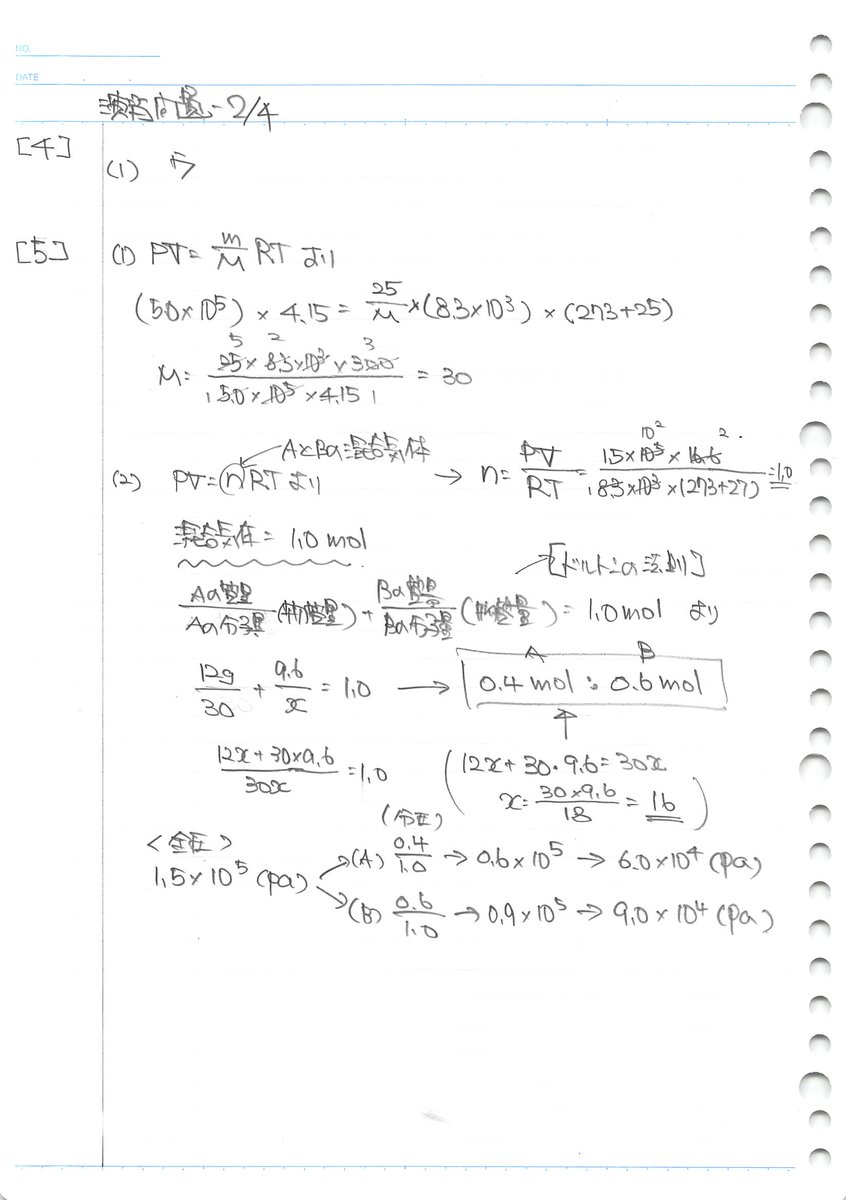 NO.
DATE
演習問題-2/4
[4]
(1) ウ
[5] (1) PV = m/M RT より
(5.0×10⁵) × 4.15 = 25/M × (8.3×10³) × (273+25)
M = 25 × 8.3×10³ × 300 / 5.0×10⁵ × 4.15 = 30
AとBの混合気体
(2) PV = nRT より → n = PV/RT = 1.5×10⁵ × 16.6 / 8.3×10³ × (273+27) = 1.0
混合気体 = 1.0 mol
[ドルトンの法則]
Aの質量/Aの分子量 (物質量) + Bの質量/Bの分子量 (物質量) = 1.0 mol より
A B
12g/30 + 9.6/x = 1.0 → 0.4 mol : 0.6 mol
12x + 30×9.6 / 30x = 1.0 (12x + 30・9.6 = 30x
x = 30×9.6/18 = 16)
(分圧)
<全圧>
1.5×10⁵ (Pa)
(A) 0.4/1.0 → 0.6×10⁵ → 6.0×10⁴ (Pa)
(B) 0.6/1.0 → 0.9×10⁵ → 9.0×10⁴ (Pa)